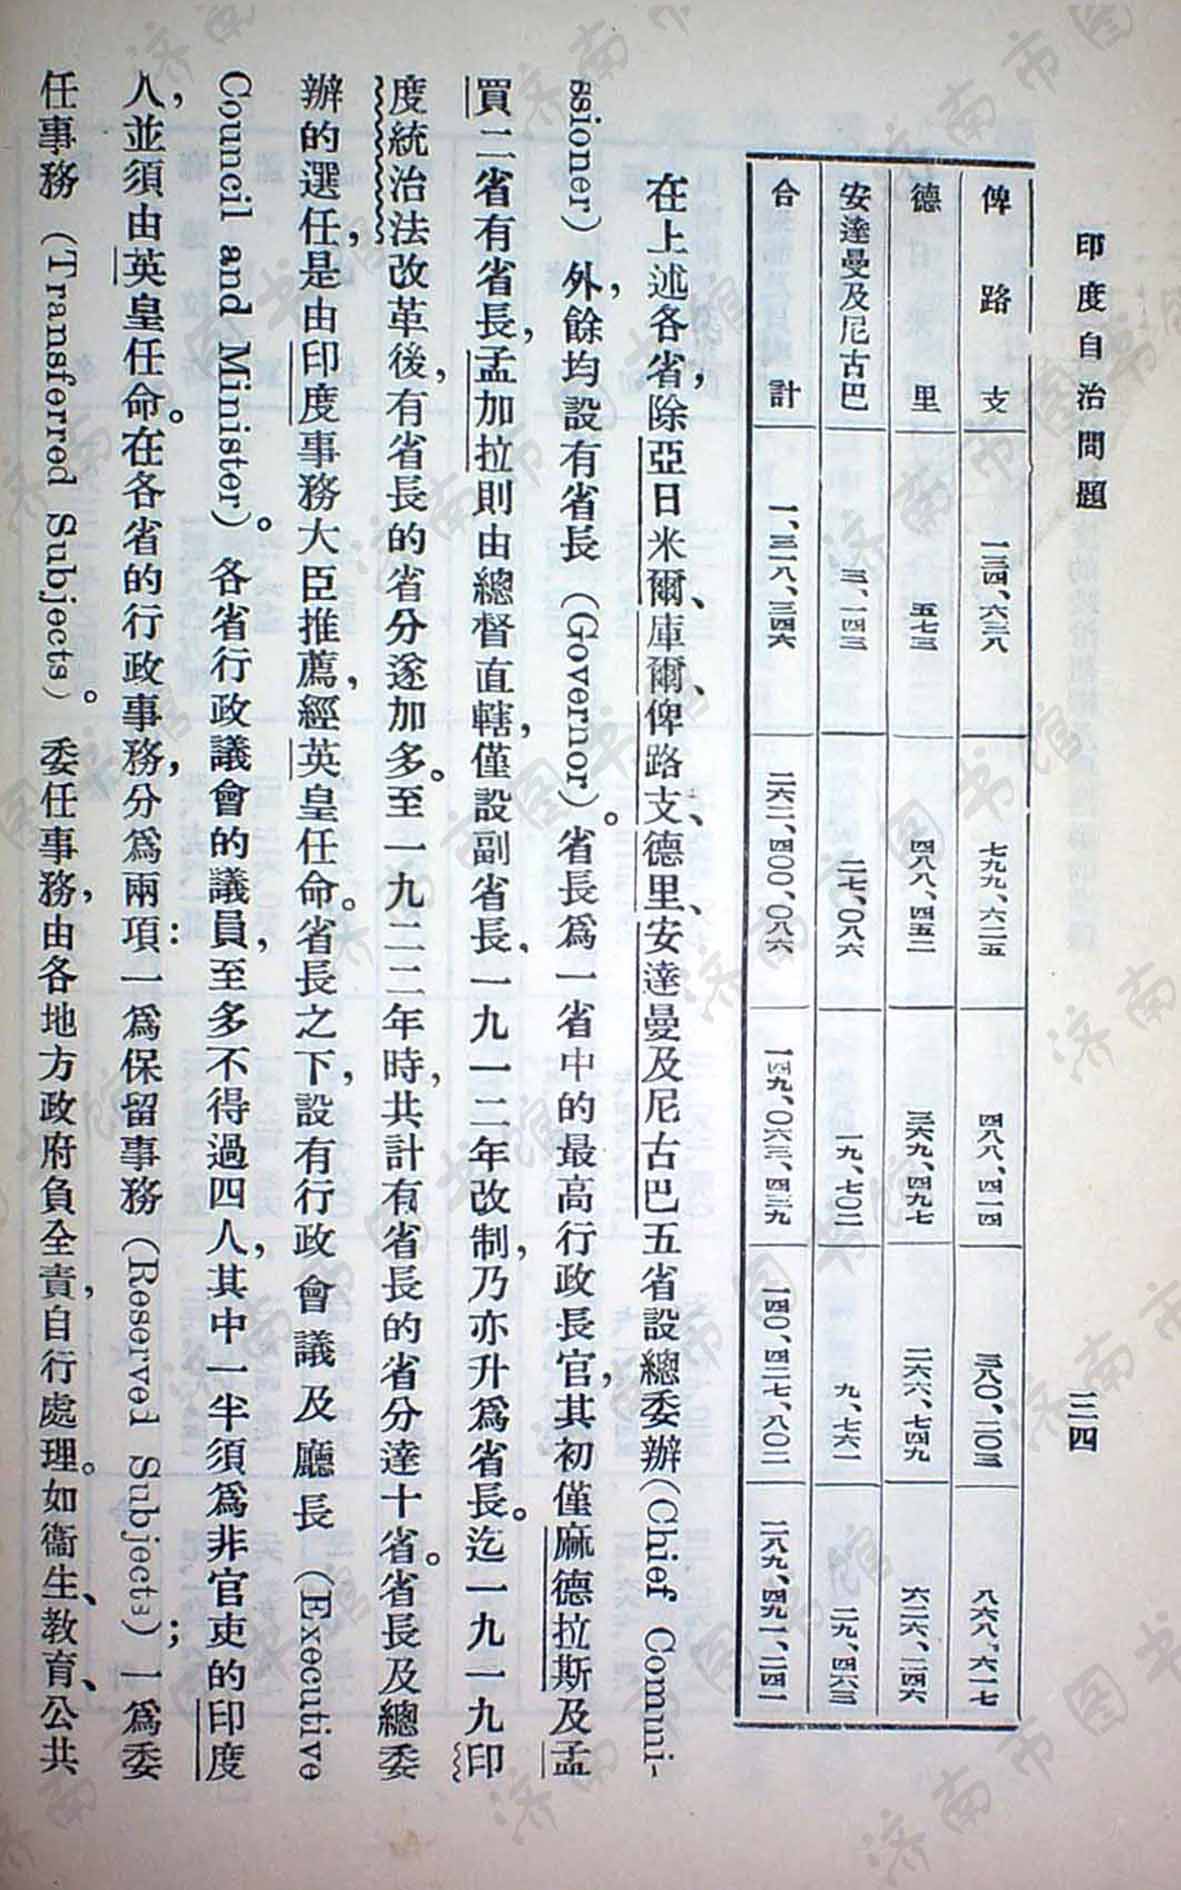 印度自治問題
三四
俾路支 一三四、六三八 七九九、六二五 四八八、四一四 三八〇、二〇三 八六八、六一七
德里 五七三 四八八、四五二 三六九、四九七 二六六、七四九 六二六、二四六
安達曼及尼古巴 三、一四三 二七、〇八六 一九、七〇二 九、七六一 二九、四六三
合計 一、三一八、三四六 二六二、四〇〇、〇八六 一四九、〇六三、四三九 一四〇、四二七、八〇二 二八九、四九一、二四一
在上述各省，除亞日米爾、庫爾、俾路支、德里、安達曼及尼古巴五省設總委辦（Chief Commi-
ssioner）外，餘均設有省長（Governor）。省長爲一省中的最高行政長官，其初僅麻德拉斯及孟
買二省有省長，孟加拉則由總督直轄，僅設副省長，一九一二年改制，乃亦升爲省長。迄一九一九印
度統治法改革後，有省長的省分遂加多。至一九二二年時，共計有省長的省分達十省。省長及總委
辦的選任，是由印度事務大臣推薦，經英皇任命。省長之下，設有行政會議及廳長（Executive
Council and Minister）。各省行政議會的議員，至多不得過四人，其中一半須爲非官吏的印度
人，並須由英皇任命。在各省的行政事務，分爲兩項：一爲保留事務（Reserved Subjects）；一爲委
任事務（Transferred Subjects）。委任事務，由各地方政府負全責，自行處理。如衞生、教育、公共
济南市图书馆